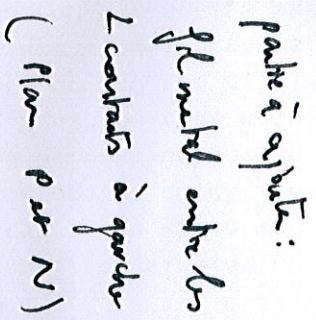 partie à ajouter :
fil metal entre les
2 contacts à gauche
( Plan P et N )